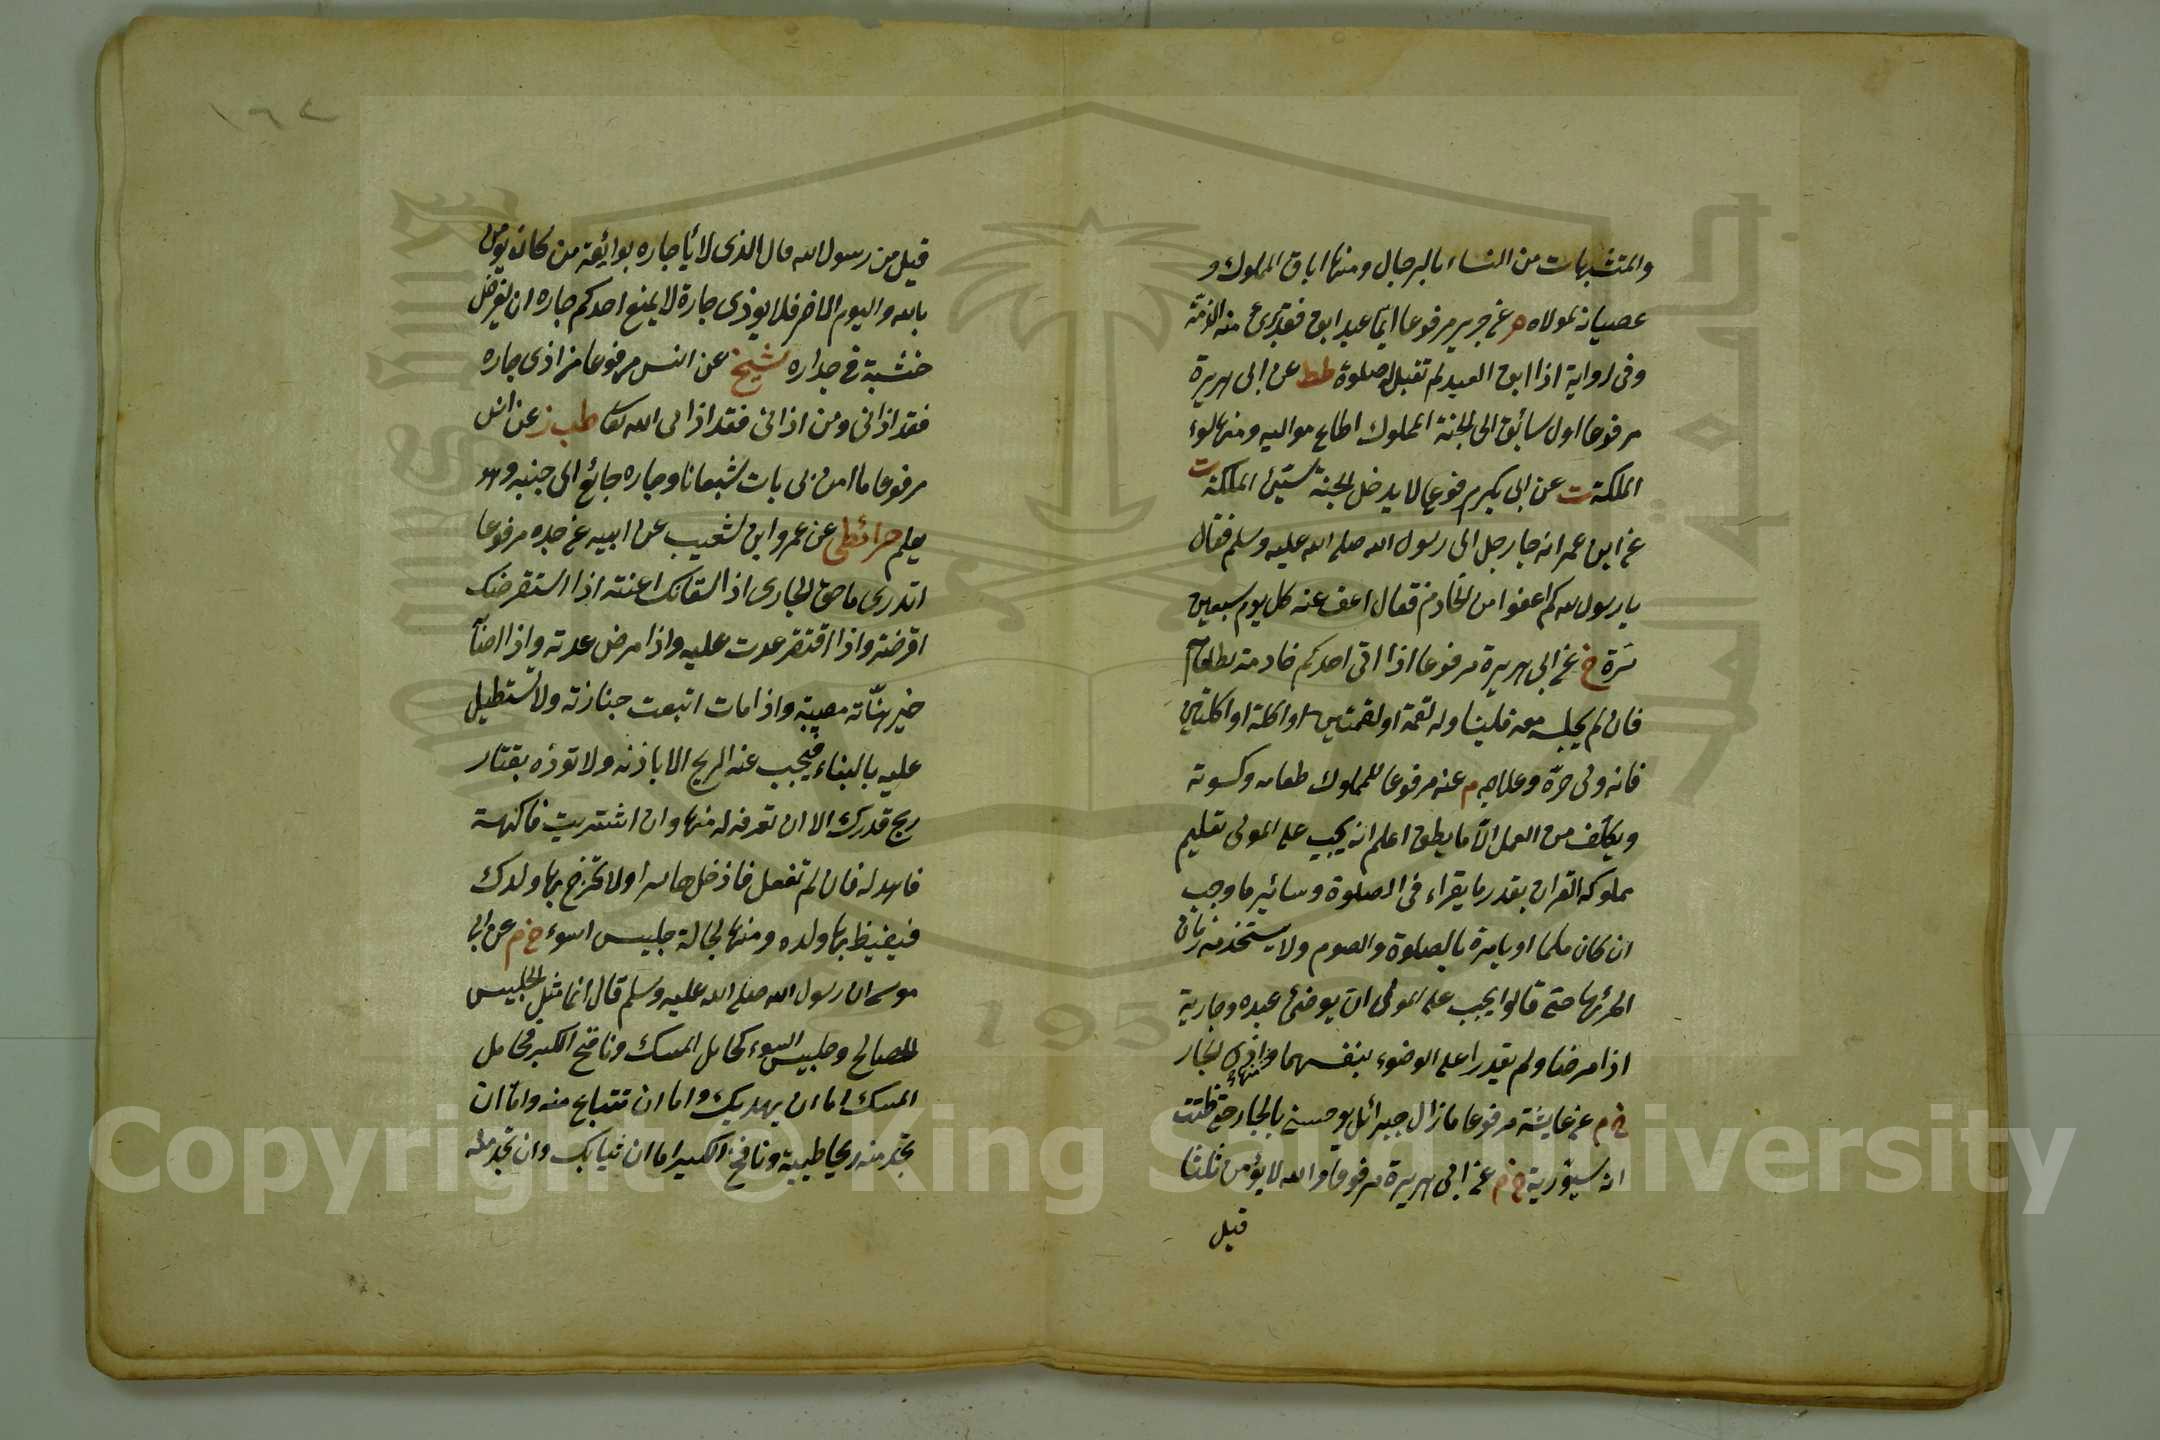 والمتشبهات من النساء بالرجال ومنها اباق المملوك و
عصيانه لمولاه م عن جرير مرفوعا ايما عبد ابق فقد برئ منه الذمة
وفى رواية اذا ابق العبد لم تقبل له صلوة طط عن ابى هريرة
مرفوعا اول سابق الى الجنة المملوك اطاع مواليه ومنها سوء
الملكة ت عن ابى بكر مرفوعا لا يدخل الجنة سيئ الملكة ت
عن ابن عمر انه جا رجل الى رسول الله صلى الله عليه وسلم فقال
يا رسول الله كم اعفوا من الخادم فقال اعف عنه كل يوم سبعين
مرة خ عن ابى هريرة مرفوعا اذا اتى احدكم خادمه بطعام
فان لم يجلسه معه فليناوله لقمة او لقمتين او اكلة او اكلتين
فانه ولى حره وعلاجه م عنه مرفوعا للمملوك طعامه وكسوته
ويكلف من العمل الا ما يطق اعلم انه يجب على المولى تعليم
مملوكه القران بقدر ما يقراء فى الصلوة وسائر ما وجب
ان كان مسلما او يامره بالصلوة والصوم ولا يستخدمه زمان
ادائها حتى قالوا يجب على المولى ان يوضئ عبده وجارية
اذا مرضا ولم يقدرا على الوضوء بنفسهما ومنها اذى الجار
خ م عن عايشة مرفوعا ما زال جبرائل يوصينى بالجار حتى ظننت
انه سيورثه خ م عن ابى هريرة مرفوعا والله لا يؤمن ثلثا
قيل
١٦٢
قيل من رسول الله قال الذى لا يأ جاره بوائقه من كان يؤمن
بالله واليوم الاخر فلا يوذى جاره لا يمنع احدكم جاره ان يغرض
خشبة فى جداره شيخ عن انس مرفوعا من اذى جاره
فقد اذانى ومن اذانى فقد اذا نى الله تعا طب ز عن انس
مرفوعا ما امن بى بات شبعانا وجاره جائع الى جنبه وهو
يعلم خرائطى عن عمرو ابن شعيب عن ابيه عن جده مرفوعا
اتدرى ما حق الجارى اذا استعانك اعنته اذا استقرضك
اقرضته واذا افتقر عدت عليه واذا مرض عدته واذا اصاب
خير هنّأته مصيبة واذا مات اتبعت جنازته ولا تستطيل
عليه بالبناء فيحجب عنه الريح الا باذنه ولا توذه بقتار
ريح قدرك الا ان تغرفه له منها وان اشتريت فاكهة
فاهد له فان لم تفعل فاذخل ها سرا ولا تخرج بها ولدك
فيغيظ بها ولده ومنها مجالسة جليس السوء خ م عن ابى
موسى ان رسول الله صلى الله عليه وسلم قال انما مثل الجليس
الصالح وجليس السوء كحامل المسك ونافخ الكير فحامل
المسك اما ان يهديك واما ان تتباع منه واما ان
تجد منه ريحا طيبة ونافخ الكير اما ان ثيابك وان تجد منه
Copyright © King Saud University
1957
جامعة الملك سعود